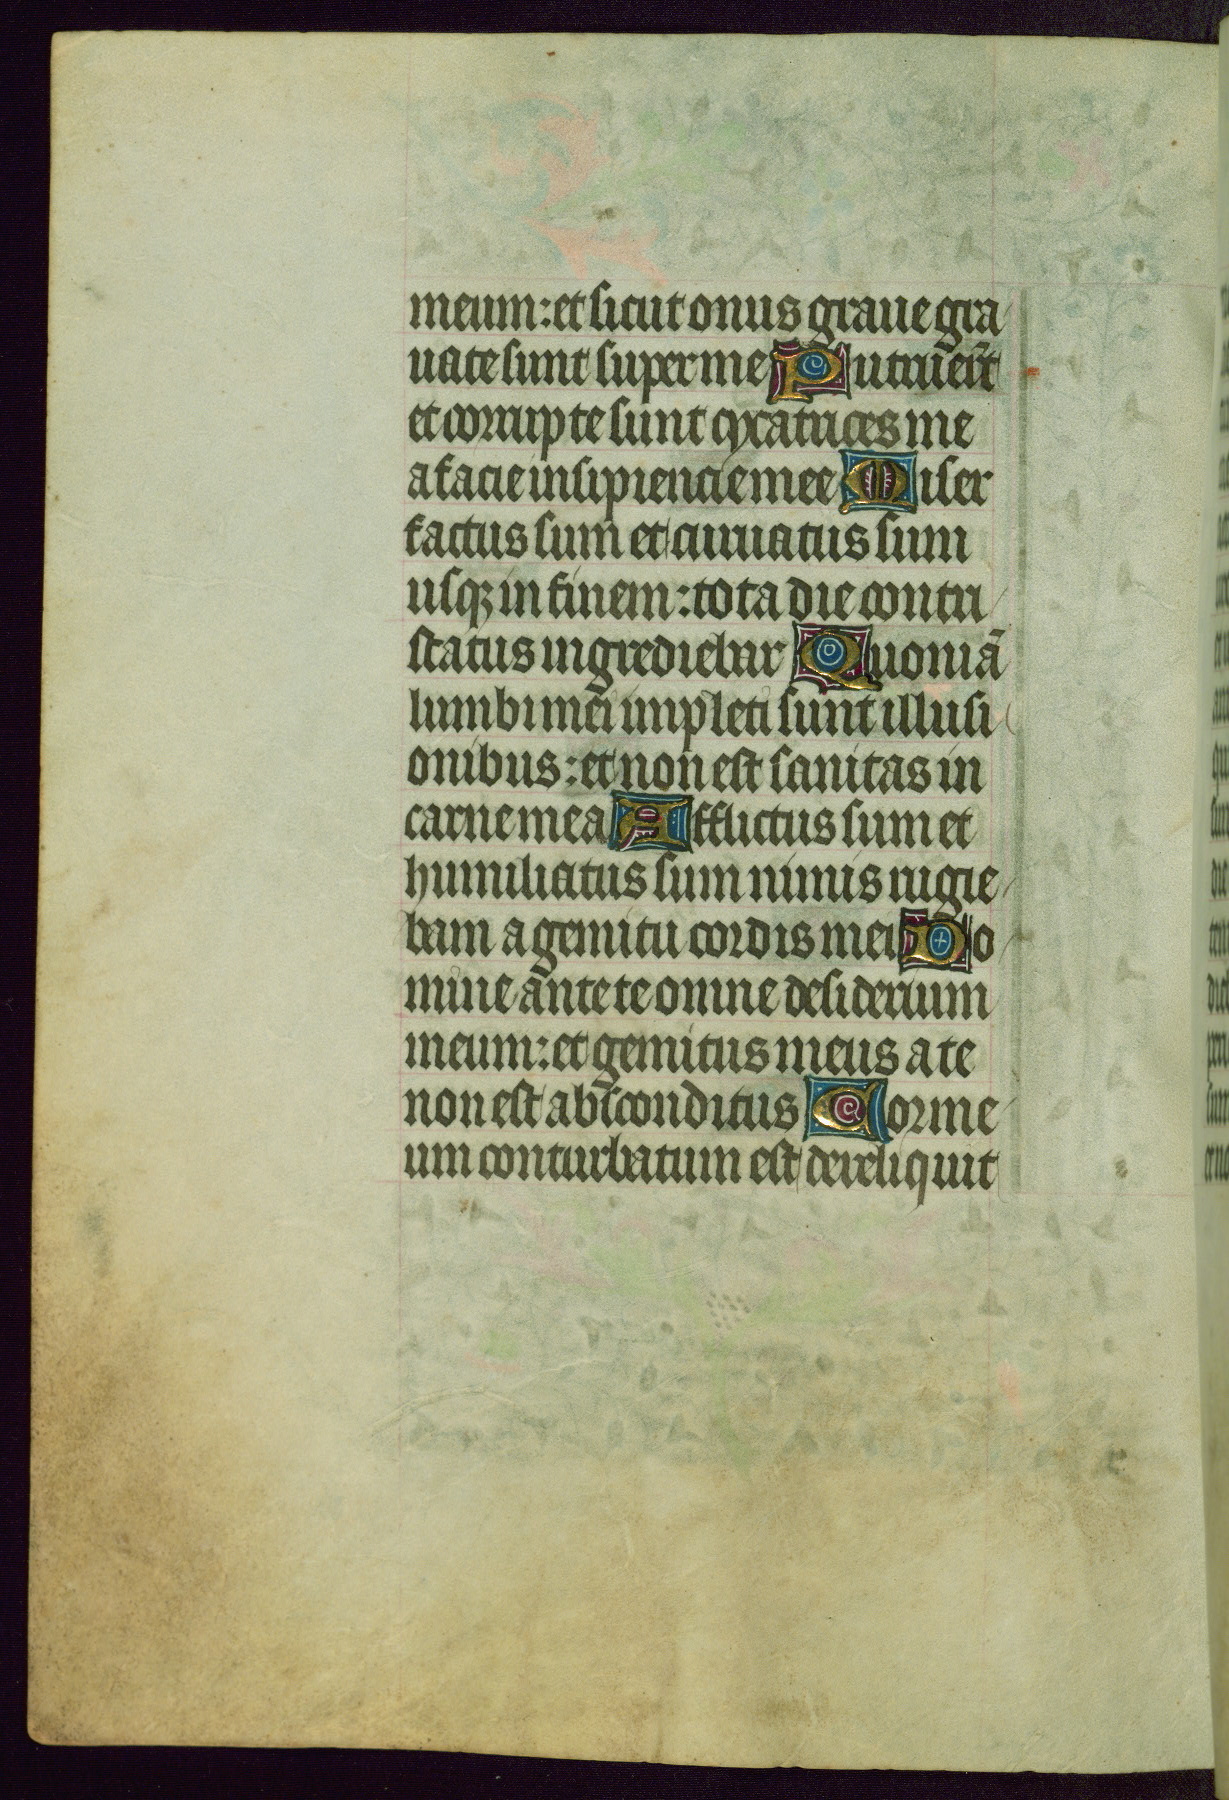 meum : et sicut onus graue gra
uate sunt super me Putruer̄t
et corrupte sunt cycatrices me
a facie insipiencie mee Miser
factus sum et curuatus sum
usqꝫ in finem : tota die contri
status ingrediebar Quoniā
lumbi mei impleti sunt illusi
onibus : et non est sanitas in
carne mea Afflictus sum et
humiliatus sum nimis rugie
bam a gemitu cordis mei Do
mine ante te omne desiderium
meum : et gemitus meus a te
non est absconditus Cor me
um conturbatum est dereliquit